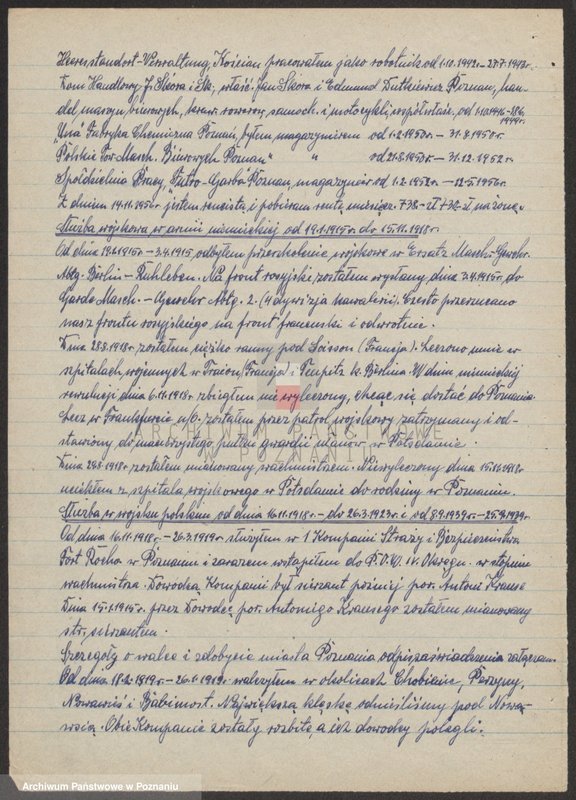 Heeresstandort-Verwaltung, Kościan pracowałem jako robotnik od 1.10.1942r. - 27.7.1943r.
Dom Handlowy J. Skóra i Ska, właśc. Jan Skóra i Edmund Dutkiewicz Poznań, han-
del maszyn biurowych, rowerów, samoch. i motocykli, współwłaśc. od 1.10.1945 -
1949r.
"Una" Fabryka Chemiczna Poznań, byłem magazynierem od 1.2.1950r. - 31.8.1950r.
Polskie Tow. Masch. Biurowych Poznań " " od 21.8.1950r. - 31.12.1952r.
Spółdzielnia Pracy, "Futro-Garba" Poznań, magazynier od 1.2.1952r. - 12.5.1956r.
Z dniem 14.11.1956r jestem rencistą i pobieram rentę miesięcz. 738.- zł + 30.- zł na żonę.
Służba wojskowa w armii niemieckiej od 19.1.1915r. do 15.11.1918r.
Od dnia 19.1.1915r. - 3.4.1915, odbyłem przeszkolenie wojskowe w Ersatz Masch. Gewehr.
Abtg. Berlin - Ruhleben. Na front rosyjski, zostałem wysłany dnia 3.4.1915r. do
Garde Masch. - Gewehr Abtg. 2. (4 dywizja kawalerii). Często przerzucano
nas z frontu rosyjskiego na front francuski i odwrotnie.
Dnia 28.8.1918r. zostałem ciężko ranny pod Soisson (Francja). Leczono mnie w
szpitalach wojennych w (Francja) i Teupitz k. Berlina. W dniu niemieckiej
rewolucji dnia 6.11.1918r. zbiegłem nie wyleczony, chcąc się dostać do Poznania.
Lecz w Frankfurcie n/O. zostałem przez patrol wojskowy zatrzymany i od-
stawiony do macierzystego pułku gwardii ułanów w Potsdamie.
Dnia 29.8.1918r. zostałem mianowany wachmistrzem. Niewyleczony dnia 15.11.1918r.
uciekłem z szpitala wojskowego w Potsdamie do rodziny w Poznaniu.
Służba w wojsku polskim od dnia 16.11.1918r. - do 26.3.1923r. i od 8.9.1939r. - 25.9.1939r.
Od dnia 16.11.1918r. - 26.3.1919r służyłem w 1 Kompanii Straży i Bezpieczeństwa
Fort Rocha w Poznaniu i zarazem wstąpiłem do P.O.W. IV. Okręgu. w stopniu
wachmistrza. Dowódcą Kompanii był sierżant później por. Antoni Krause
Dnia 15.1.1919r. przez Dowódcę por. Antoniego Krausego zostałem mianowany
str. sierżantem.
Szczegóły o walce i zdobycie miasta Poznania odpis zaświadczenia załączam.
Od dnia 18.2.1919r. - 26.1.1919r. walczyłem w okolicach Chobienic, Perzyny,
Nowawieś i Babimost. Największą klęskę odnieśliśmy pod Nową-
wsią. Obie Kompanie zostały rozbite, a ich dowódcy polegli.
ARCHIWUM PAŃSTWOWE
W POZNANIU
Archiwum Państwowe w Poznaniu